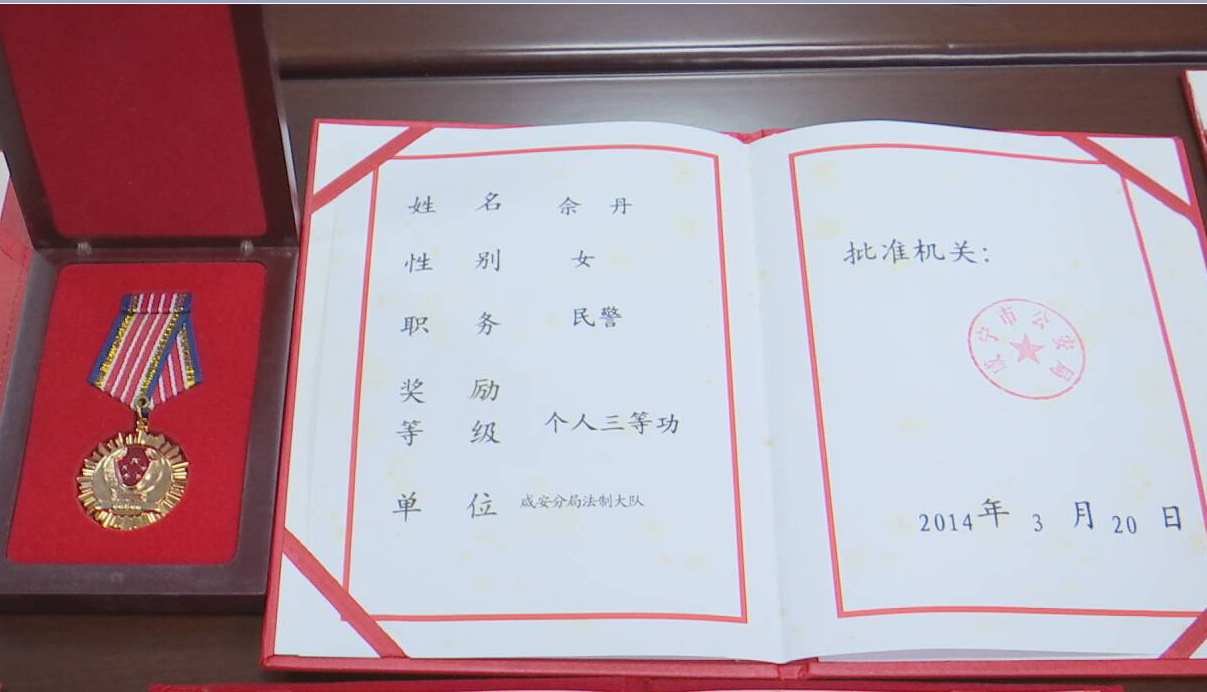 姓 名 佘 丹
性 别 女
职 务 民警
奖 励
等 级 个人三等功
单 位 咸安分局法制大队
批准机关：
咸宁市公安局
2014年 3 月 20 日